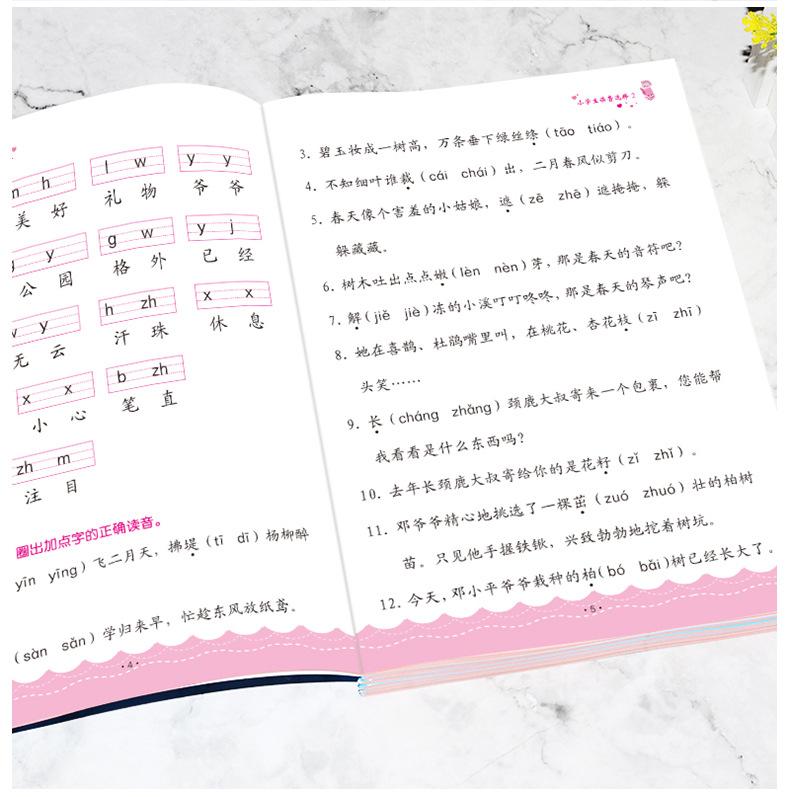 h l w y y
美 好 礼 物 爷 爷
y g w y j
公 园 格 外 已 经
y h zh x x
无 云 汗 珠 休 息
x x b zh
小 心 笔 直
zh m
注 目
圈出加点字的正确读音。
yīn yīng）飞二月天，拂堤（tī dī）杨柳醉
（sàn sǎn）学归来早，忙趁东风放纸鸢。
·4·
小学生读音选择 2
3. 碧玉妆成一树高，万条垂下绿丝绦（tāo tiáo）。
4. 不知细叶谁裁（cái chái）出，二月春风似剪刀。
5. 春天像个害羞的小姑娘，遮（zē zhē）遮掩掩，躲
躲藏藏。
6. 树木吐出点点嫩（lèn nèn）芽，那是春天的音符吧？
7. 解（jiě jiè）冻的小溪叮叮咚咚，那是春天的琴声吧？
8. 她在喜鹊、杜鹃嘴里叫，在桃花、杏花枝（zī zhī）
头笑……
9. 长（cháng zhǎng）颈鹿大叔寄来一个包裹，您能帮
我看看是什么东西吗？
10. 去年长颈鹿大叔寄给你的是花籽（zǐ zhǐ）。
11. 邓爷爷精心地挑选了一棵茁（zuó zhuó）壮的柏树
苗。只见他手握铁锹，兴致勃勃地挖着树坑。
12. 今天，邓小平爷爷栽种的柏（bó bǎi）树已经长大了。
·5·